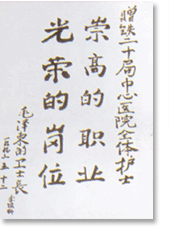 贈铁二十局中心医院全体护士
崇高的职业
光荣的岗位
毛泽东的卫士長
五 十二